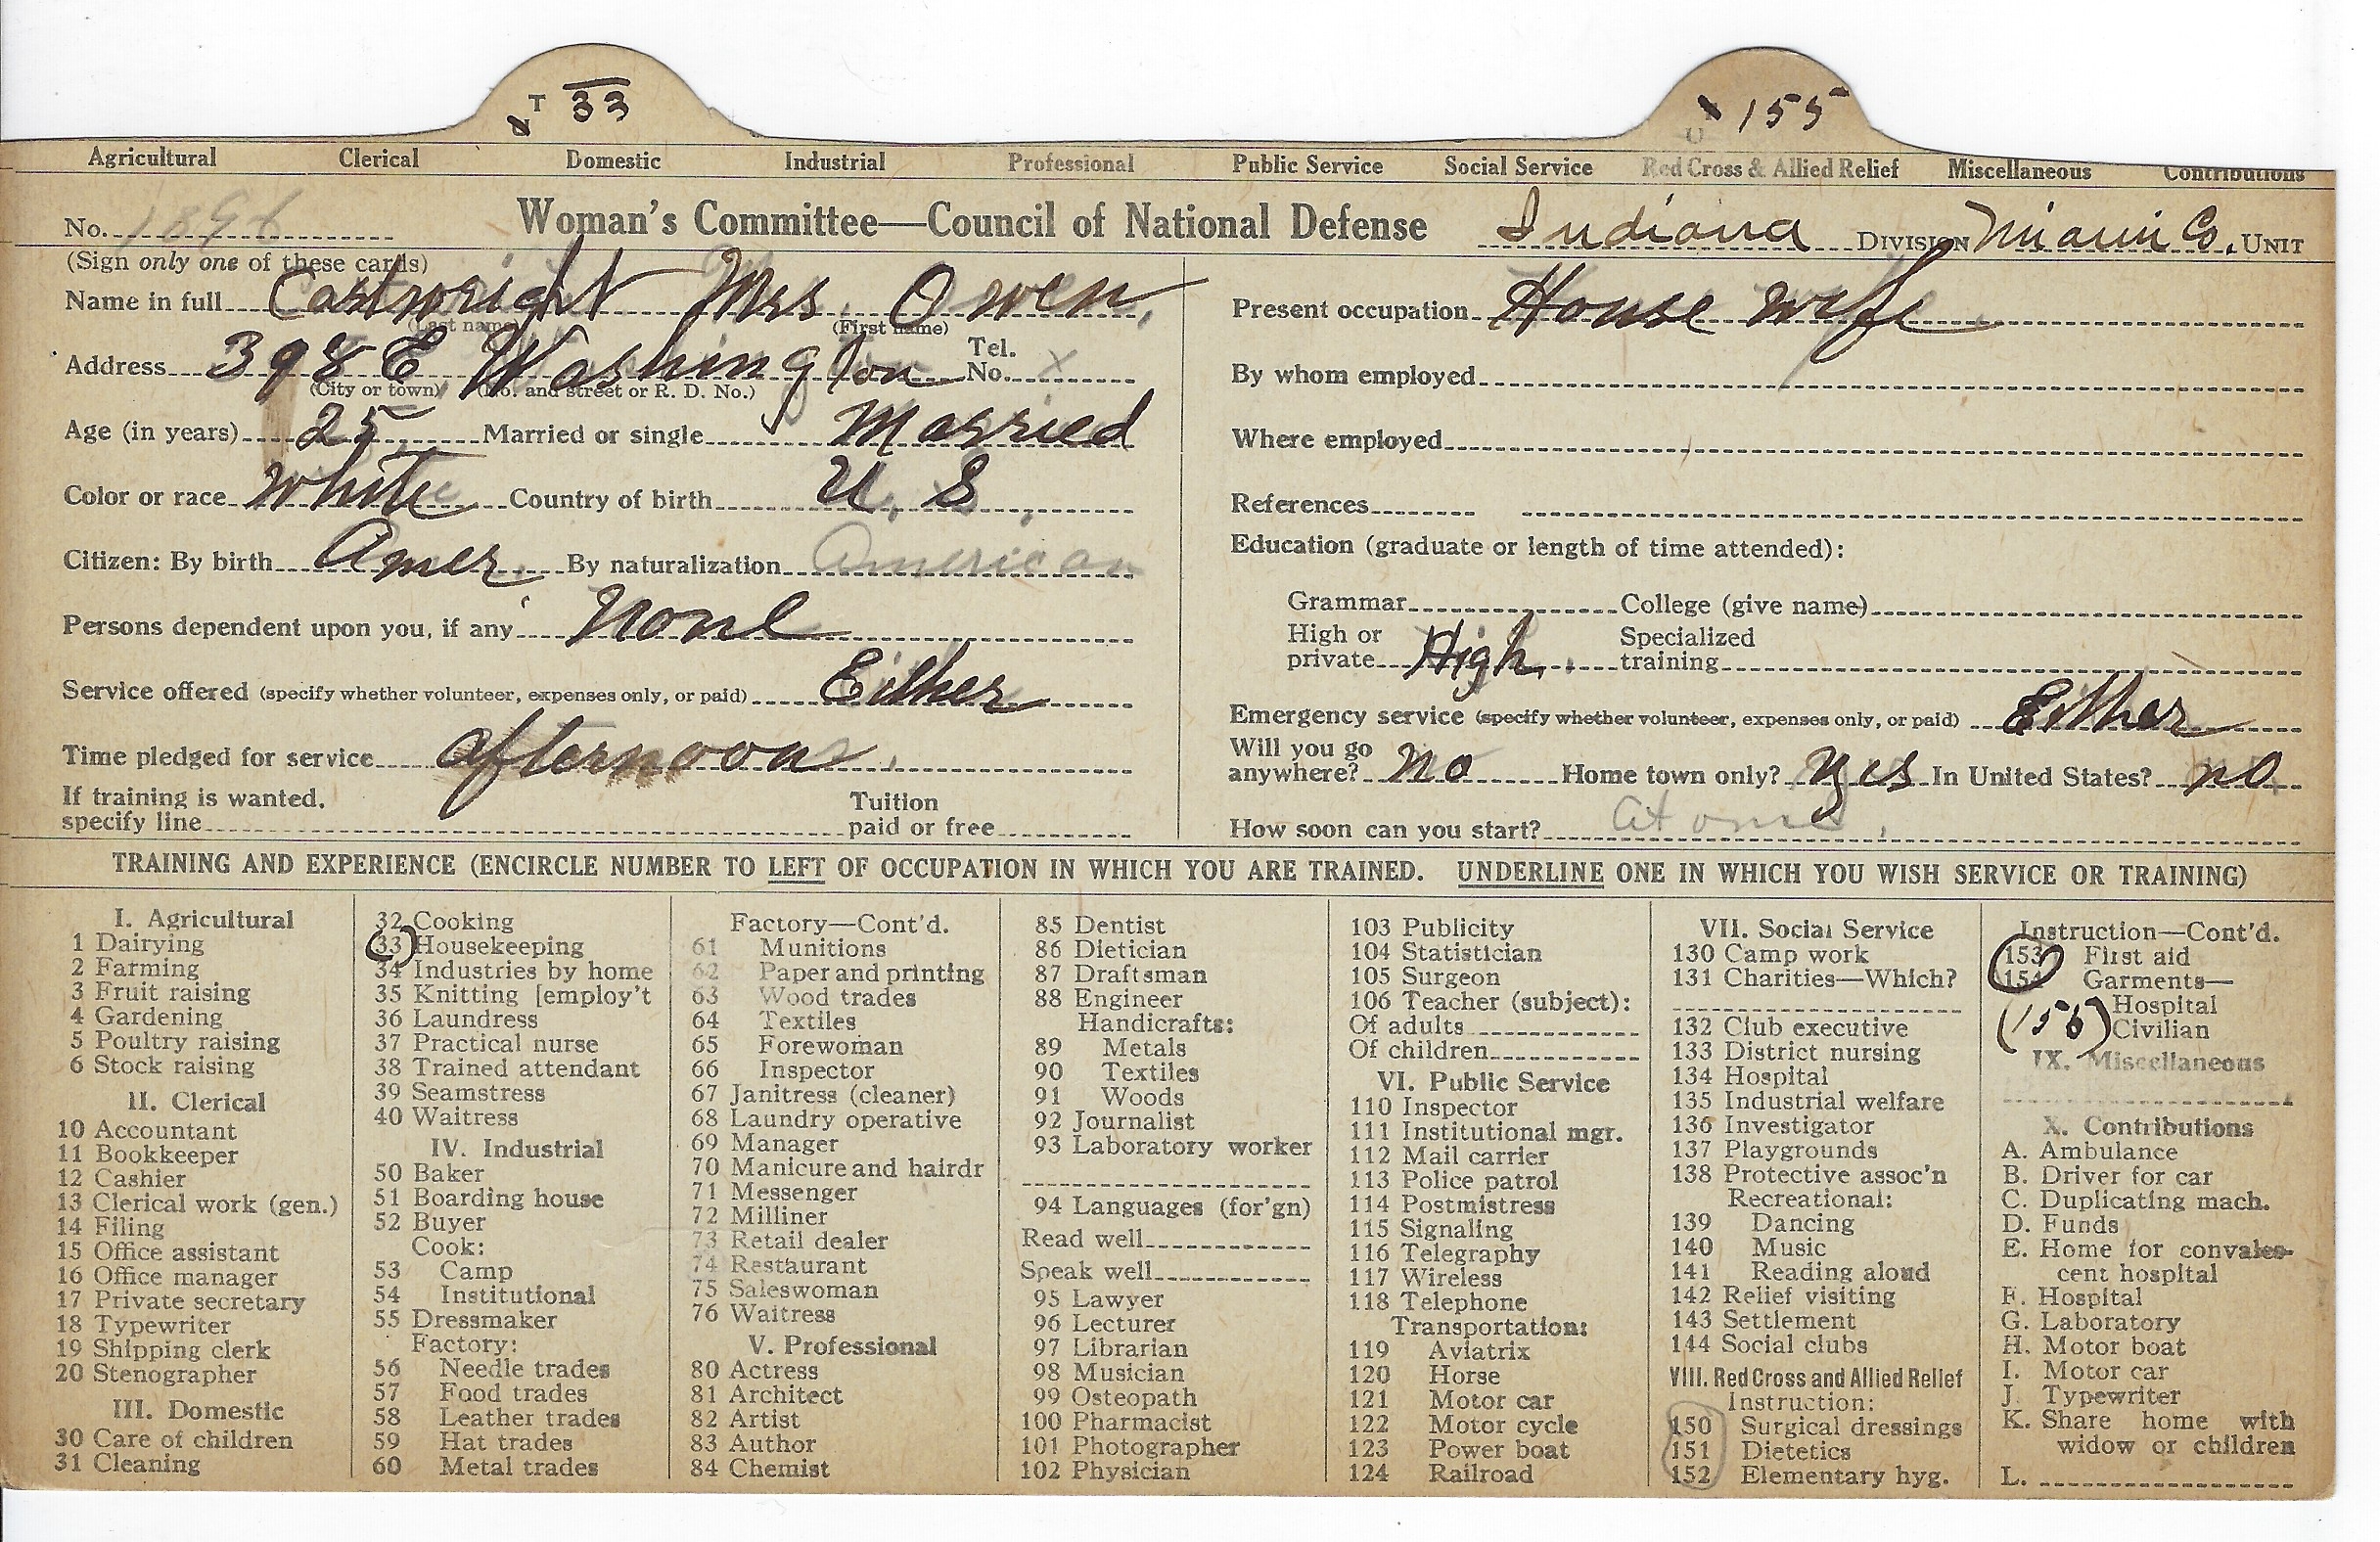 T 33
155
Agricultural Clerical Domestic Industrial Professional Public Service Social Service Red Cross & Allied Relief Miscellaneous Contributions
No. 1896 Woman's Committee—Council of National Defense Indiana DIVISION Miami Co. UNIT
(Sign only one of these cards)
Name in full Cartwright Mrs. Owen,
(Last name) (First name)
Address 398 E Washington Tel. No. x
(City or town) (No. and street or R. D. No.)
Age (in years) 25 Married or single Married
Color or race White Country of birth U. S.
Citizen: By birth Amer. By naturalization American
Persons dependent upon you, if any None
Service offered (specify whether volunteer, expenses only, or paid) Either
Time pledged for service afternoon
If training is wanted, specify line Tuition paid or free
Present occupation House wife
By whom employed
Where employed
References
Education (graduate or length of time attended):
Grammar College (give name)
High or private High. Specialized training
Emergency service (specify whether volunteer, expenses only, or paid) Either
Will you go anywhere? no Home town only? yes In United States? no
How soon can you start? At once.
TRAINING AND EXPERIENCE (ENCIRCLE NUMBER TO LEFT OF OCCUPATION IN WHICH YOU ARE TRAINED. UNDERLINE ONE IN WHICH YOU WISH SERVICE OR TRAINING)
I. Agricultural
1 Dairying
2 Farming
3 Fruit raising
4 Gardening
5 Poultry raising
6 Stock raising
II. Clerical
10 Accountant
11 Bookkeeper
12 Cashier
13 Clerical work (gen.)
14 Filing
15 Office assistant
16 Office manager
17 Private secretary
18 Typewriter
19 Shipping clerk
20 Stenographer
III. Domestic
30 Care of children
31 Cleaning
32 Cooking
33 Housekeeping
34 Industries by home
35 Knitting [employ't
36 Laundress
37 Practical nurse
38 Trained attendant
39 Seamstress
40 Waitress
IV. Industrial
50 Baker
51 Boarding house
52 Buyer
Cook:
53 Camp
54 Institutional
55 Dressmaker
Factory:
56 Needle trades
57 Food trades
58 Leather trades
59 Hat trades
60 Metal trades
Factory—Cont'd.
61 Munitions
62 Paper and printing
63 Wood trades
64 Textiles
65 Forewoman
66 Inspector
67 Janitress (cleaner)
68 Laundry operative
69 Manager
70 Manicure and hairdr
71 Messenger
72 Milliner
73 Retail dealer
74 Restaurant
75 Saleswoman
76 Waitress
V. Professional
80 Actress
81 Architect
82 Artist
83 Author
84 Chemist
85 Dentist
86 Dietician
87 Draftsman
88 Engineer
Handicrafts:
89 Metals
90 Textiles
91 Woods
92 Journalist
93 Laboratory worker
94 Languages (for'gn)
Read well
Speak well
95 Lawyer
96 Lecturer
97 Librarian
98 Musician
99 Osteopath
100 Pharmacist
101 Photographer
102 Physician
103 Publicity
104 Statistician
105 Surgeon
106 Teacher (subject):
Of adults
Of children
VI. Public Service
110 Inspector
111 Institutional mgr.
112 Mail carrier
113 Police patrol
114 Postmistress
115 Signaling
116 Telegraphy
117 Wireless
118 Telephone
Transportation:
119 Aviatrix
120 Horse
121 Motor car
122 Motor cycle
123 Power boat
124 Railroad
VII. Social Service
130 Camp work
131 Charities—Which?
132 Club executive
133 District nursing
134 Hospital
135 Industrial welfare
136 Investigator
137 Playgrounds
138 Protective assoc'n
Recreational:
139 Dancing
140 Music
141 Reading aloud
142 Relief visiting
143 Settlement
144 Social clubs
VIII. Red Cross and Allied Relief
Instruction:
150 Surgical dressings
151 Dietetics
152 Elementary hyg.
Instruction—Cont'd.
153 First aid
154 Garments—
Hospital
Civilian
IX. Miscellaneous
X. Contributions
A. Ambulance
B. Driver for car
C. Duplicating mach.
D. Funds
E. Home for convales-
cent hospital
F. Hospital
G. Laboratory
H. Motor boat
I. Motor car
J. Typewriter
K. Share home with
widow or children
L.